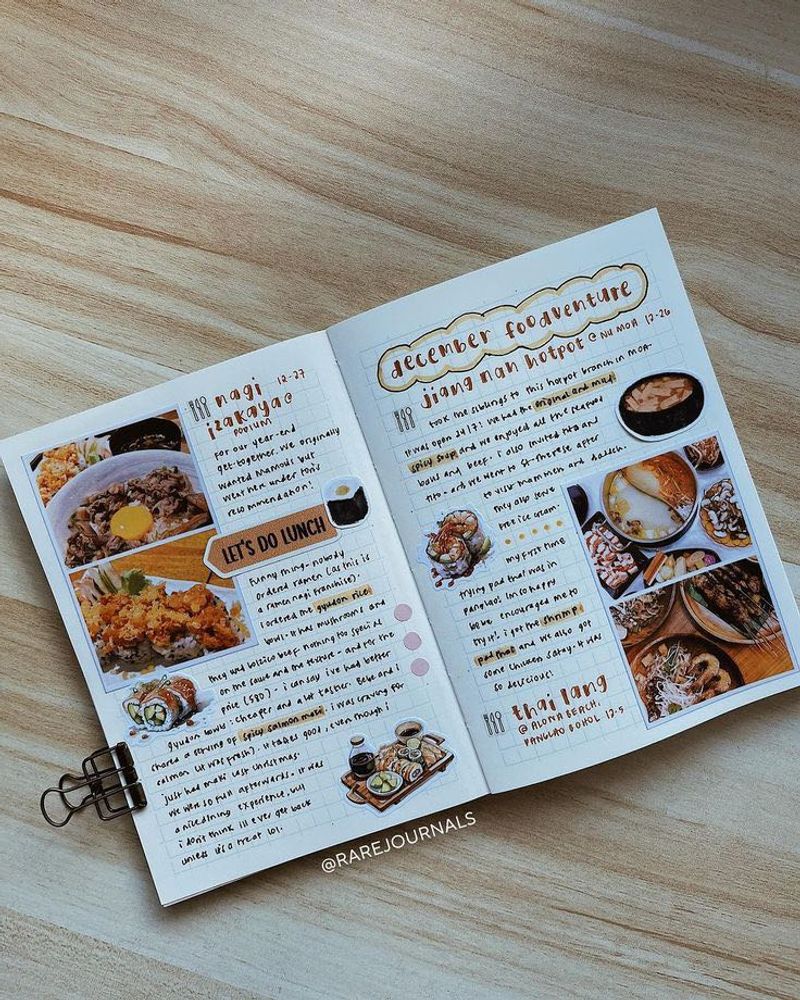 nagi 12-27
izakaya @
PODIUM
For our year-end
get-together. We originally
wanted Mamou's but
went here under Toni's
recommendation!
LET'S DO LUNCH
Funny thing- nobody
ordered ramen (as this is
a ramen nagi franchise).
I ordered the gyudon rice
bowl. It had mushrooms and
beef. Nothing too special
on the sauce and the texture - and for the
price (580) - i can say i've had better
gyudon bowls : cheaper and a lot tastier. Bebe and i
shared a serving of spicy salmon maki. i was craving for
salmon (it was fresh). it tastes good, even though i
just had maki last christmas.
We were so full afterwards. It was
a nice dining experience, but
i don't think i'll ever get back
unless it's a treat lol.
december foodventure
jiang nan hotpot @ NU MOA 12-26
Took the siblings to this hotpot branch in MOA-
it was open 24/7! We had the original and mala
spicy soup and we enjoyed all the seafood
bowl and beef. i also invited tito and
tita - and we went to St. Therese after
to visit mammen and daddeh.
They also serve
free ice cream.
my first time
trying pad thai was in
panglao! i'm so happy
bebe encouraged me to
try it! i got the shrimp
pad thai and we also got
some chicken satay. it was
so delicious!
thai lang
@ ALONA BEACH,
PANGLAO BOHOL 12-5
@RAREJOURNALS